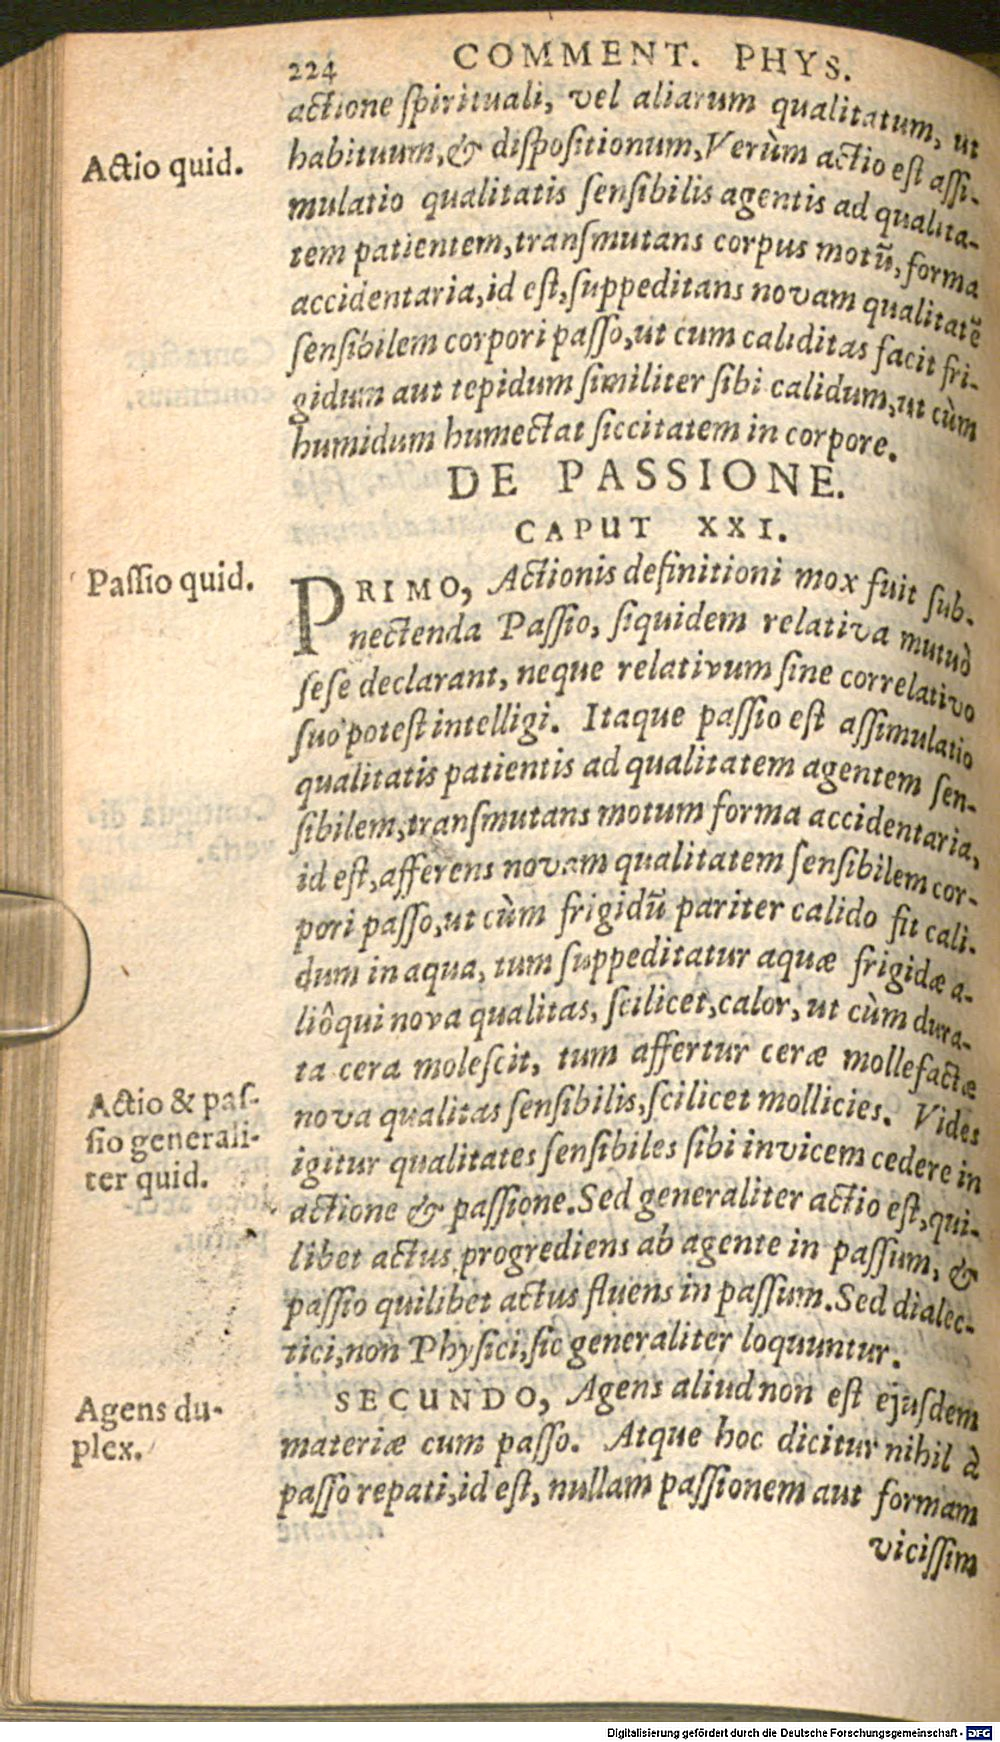 224 COMMENT. PHYS.
actione ſpirituali, vel aliarum qualitatum, ut
Actio quid.
habituum, & diſpoſitionum, Verùm actio eſt aſſi-
mulatio qualitatis ſenſibilis agentis ad qualita-
tem patientem, tranſmutans corpus motũ, forma
accidentaria, id eſt, ſuppeditans novam qualitatẽ
ſenſibilem corpori paſſo, ut cum caliditas facit fri-
gidum aut tepidum ſimiliter ſibi calidum, ut cùm
humidum humectat ſiccitatem in corpore.
DE PASSIONE.
CAPUT XXI.
Paſſio quid.
PRIMO, Actionis definitioni mox fuit ſub-
nectenda Paſſio, ſiquidem relativa mutuò
ſeſe declarant, neque relativum ſine correlativo
ſuo poteſt intelligi. Itaque paſſio eſt aſſimulatio
qualitatis patientis ad qualitatem agentem ſen-
ſibilem, tranſmutans motum forma accidentaria,
id eſt, afferens novam qualitatem ſenſibilem cor-
pori paſſo, ut cùm frigidũ pariter calido fit cali-
dum in aqua, tum ſuppeditatur aquæ frigidæ a-
liôqui nova qualitas, ſcilicet, calor, ut cùm dura-
ta cera moleſcit, tum affertur ceræ mollefactæ
nova qualitas ſenſibilis, ſcilicet mollicies. Vides
igitur qualitates ſenſibiles ſibi invicem cedere in
actione & paſſione. Sed generaliter actio eſt, qui-
libet actus progrediens ab agente in paſſum, &
paſſio quilibet actus fluens in paſſum. Sed dialec-
tici, non Phyſici, ſic generaliter loquuntur.
Actio & paſ-
ſio generali-
ter quid.
SECUNDO, Agens aliud non eſt ejuſdem
materiæ cum paſſo. Atque hoc dicitur nihil à
paſſo repati, id eſt, nullam paſſionem aut formam
Agens du-
plex.
viciſſim
Digitalisierung gefördert durch die Deutsche Forschungsgemeinschaft - DFG